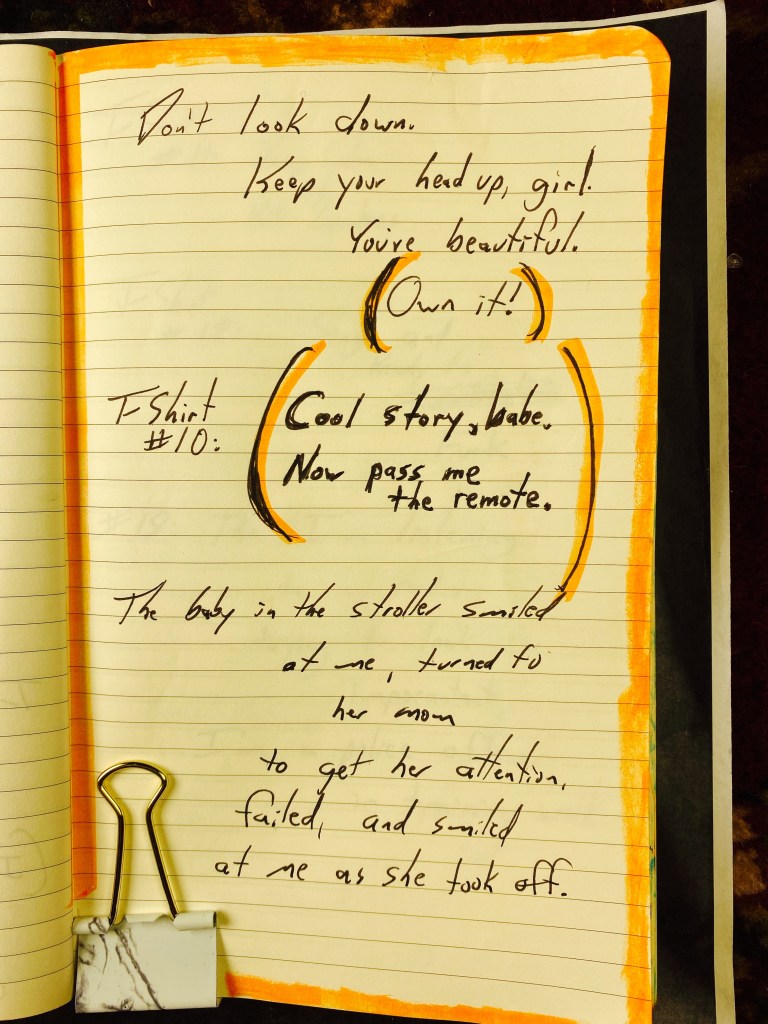 Don't look down.
Keep your head up, girl.
You're beautiful.
(Own it!)
T-Shirt
#10:
(Cool story, babe.
Now pass me
the remote.)
The baby in the stroller smiled
at me, turned to
her mom
to get her attention,
failed, and smiled
at me as she took off.